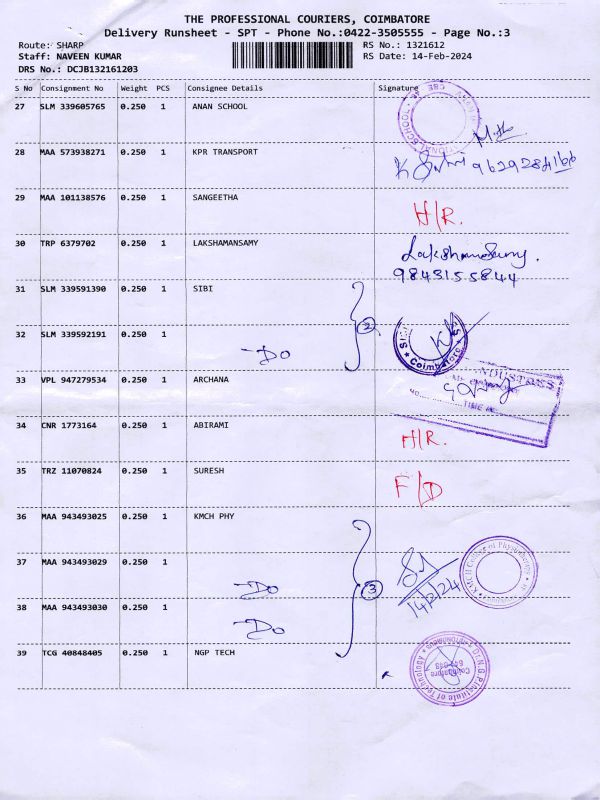 THE PROFESSIONAL COURIERS, COIMBATORE
Delivery Runsheet - SPT - Phone No.:0422-3505555 - Page No.:3
Route: SHARP
Staff: NAVEEN KUMAR
DRS No.: DCJB132161203
RS No.: 1321612
RS Date: 14-Feb-2024
S No Consignment No Weight PCS Consignee Details Signature
27 SLM 339605765 0.250 1 ANAN SCHOOL
28 MAA 573938271 0.250 1 KPR TRANSPORT
29 MAA 101138576 0.250 1 SANGEETHA H/R.
30 TRP 6379702 0.250 1 LAKSHAMANSAMY Lakshmansamy.
9843155844
31 SLM 339591390 0.250 1 SIBI
2
32 SLM 339592191 0.250 1 Do
Coimbatore
33 VPL 947279534 0.250 1 ARCHANA
34 CNR 1773164 0.250 1 ABIRAMI H/R.
35 TRZ 11070824 0.250 1 SURESH F/D
36 MAA 943493025 0.250 1 KMCH PHY
37 MAA 943493029 0.250 1 Do 3
KMCH College of Physiotherapy
14/2/24
38 MAA 943493030 0.250 1 Do
39 TCG 40848405 0.250 1 NGP TECH
Dr.N.G.P Institute of Technology
Coimbatore